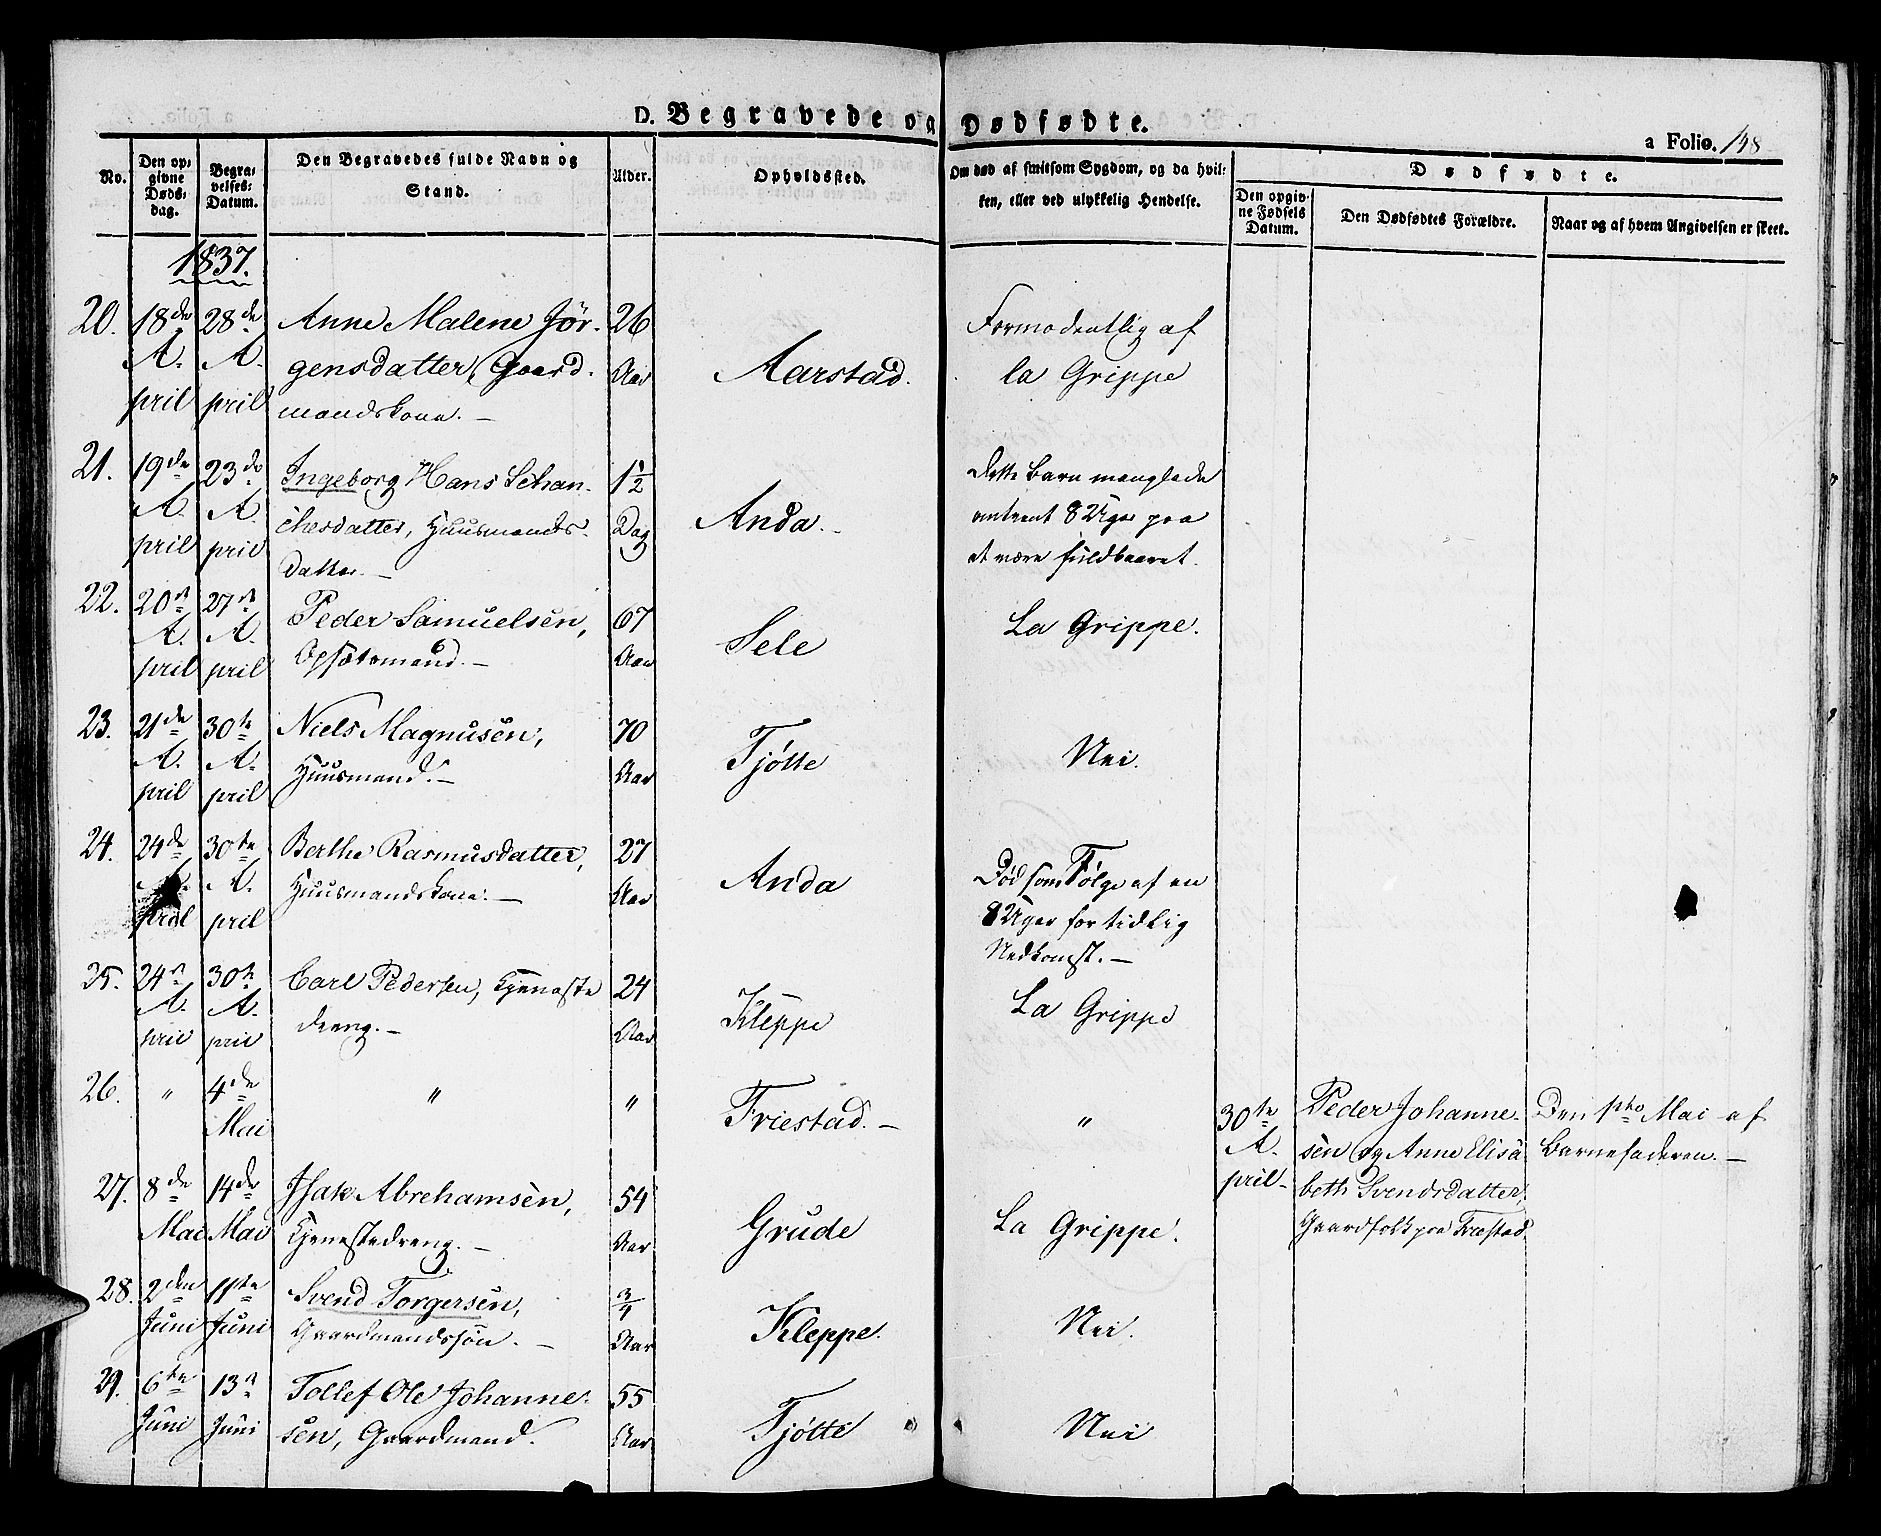 D. Begravede og Dødfødte.
a Folio. 148
No.
Den op-
givne
Døds-
dag.
Begra-
velses-
Datum.
Den Begravedes fulde Navn og
Stand.
Alder.
Opholdssted.
Om død af smitsom Sygdom, og da hvil-
ken, eller ved ulykkelig Hendelse.
Dødfødte.
Den opgiv-
ne Fødsels
Datum.
Den Dødfødtes Forældre.
Naar og af hvem Angivelsen er skeet.
1837.
20. 18de A. pril 28de A. pril
Anne Malene Jör-
gensdatter, Gaard-
mandskone. —
26 Aar
Aarstad.
Formodentlig af
la Grippe
21. 19de A. pril 23de A. pril
Ingeborg Hans Schan-
chesdatter, Huusmands-
datter. —
1½ Dag
Anda. -
Dette Barn manglede
omtrent 8 Uger paa
at være fuldbaaret.
22. 20n A. pril 27n A. pril
Peder Samuelsen,
Opsætsmand. —
67 Aar
Sele
La Grippe.
23. 21de A. pril 30te A. pril
Niels Magnusen,
Huusmand. —
70 Aar
Tjøtte
Nei.
24. 24de A. pril 30te A. pril
Berthe Rasmusdatter,
Huusmandskone. —
27 Aar
Anda
Død som Følge af en
8 Uger for tidlig
Nedkomst. —
25. 24n A. pril 30te A. pril
Carl Pedersen, Tjeneste
dreng. —
24 Aar
Kleppe
La Grippe
26. " 4de Mai
"
"
Friestad. —
"
30te A. pril
Peder Johanne-
sen og Anne Elisa
beth Svendsdatter,
Gaardfolk paa Friestad
Den 1ste Mai af
Barnefaderen. —
27. 8de Mai 14de Mai
Isak Abrehamsen,
Tjenestedreng. —
54 Aar
Grude
La Grippe.
28. 2den Juni 11te Juni
Svend Torgersen,
Gaardmandssøn. —
¾ Aar
Kleppe.
Nei.
29. 6te Juni 13n Juni
Tollef Ole Johanne-
sen, Gaardmand.
55 Aar
Tjøtte
Nei